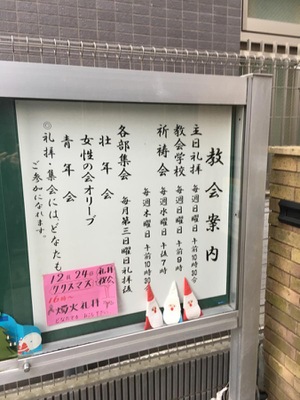 教会案内
主日礼拝 毎週日曜日 午前10時30分
教会学校 毎週日曜日 午前9時
祈祷会 毎週水曜日 午後7時
毎週木曜日 午前10時30分
各部集会 毎月第三日曜日礼拝後
壮年会
女性の会オリーブ
青年会
◎礼拝・集会にはどなたも
ご参加になれます。
12月24日
礼拝
クリスマス
16時〜
燭火礼拝